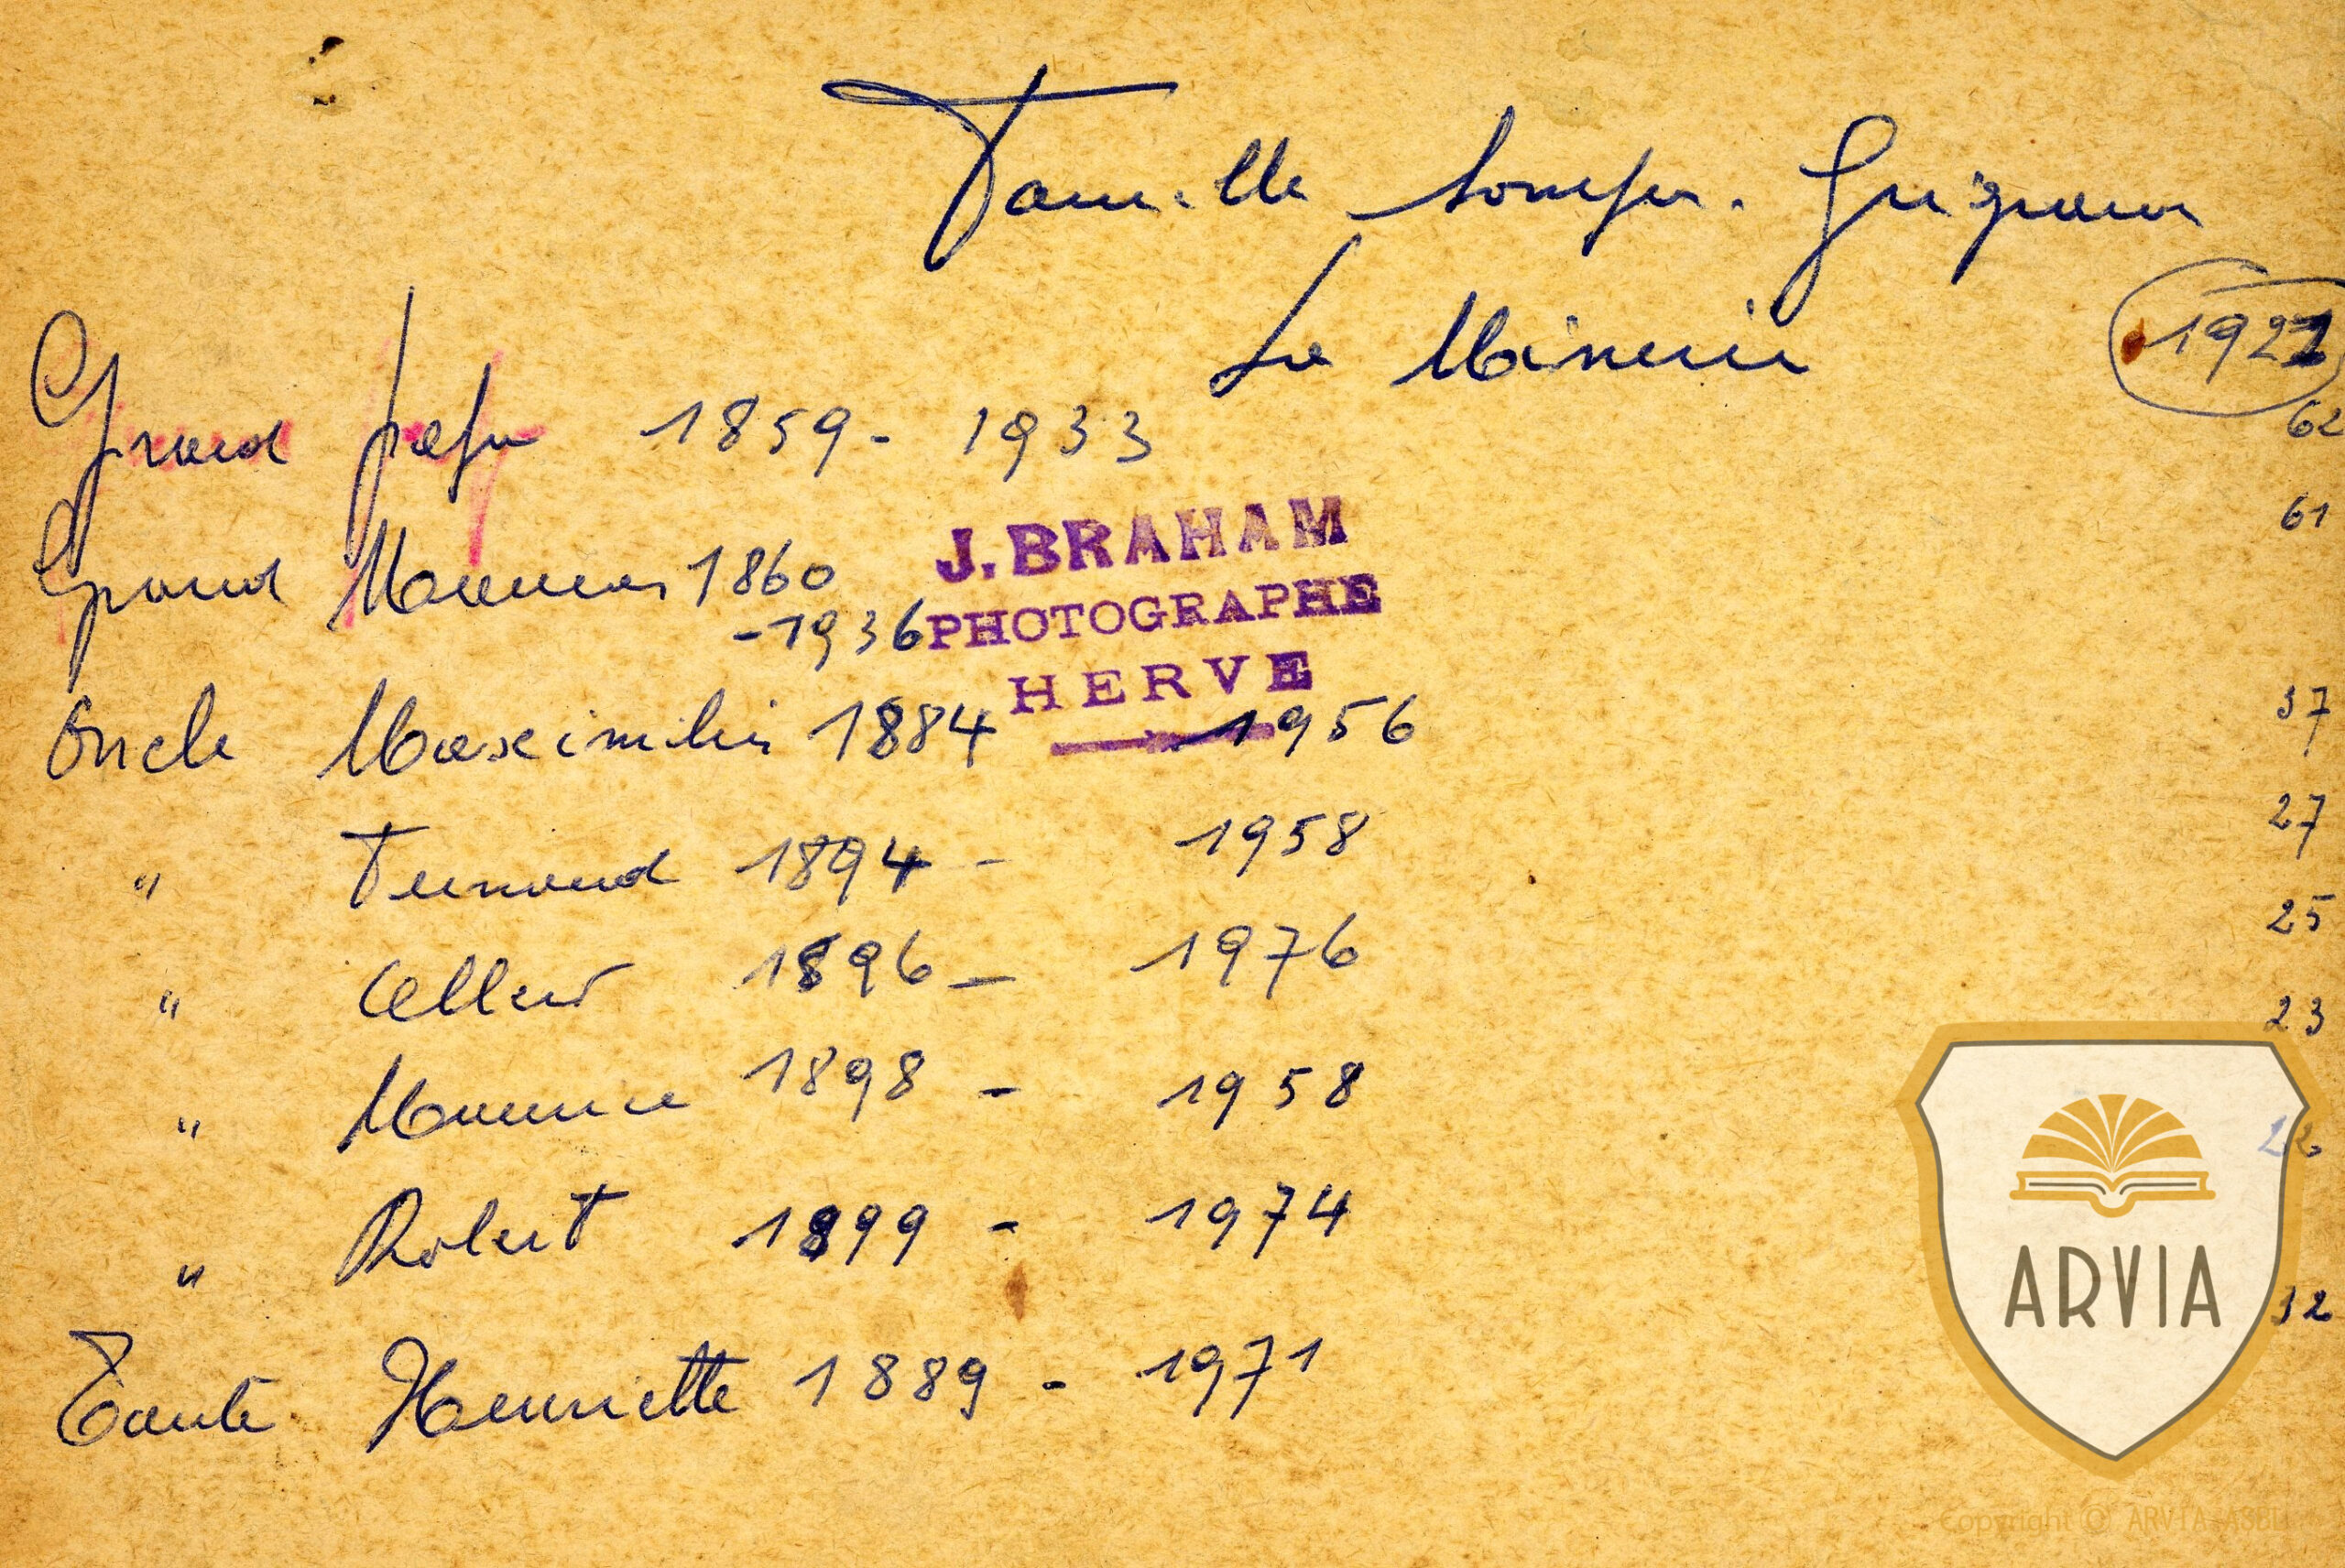 Famille Lonsfer. Grignard
La Minerie
1921
Grand papa 1859 - 1933 62
Grand Maman 1860 61
- 1936
J. BRAHAM
PHOTOGRAPHE
HERVE
Oncle Maximilien 1884 - 1956 37
" Fernand 1894 - 1958 27
" Albert 1896 - 1976 25
" Maurice 1898 - 1958 23
" Robert 1899 - 1974 22
Tante Henriette 1889 - 1971 32
ARVIA
Copyright © ARVIA ASBL